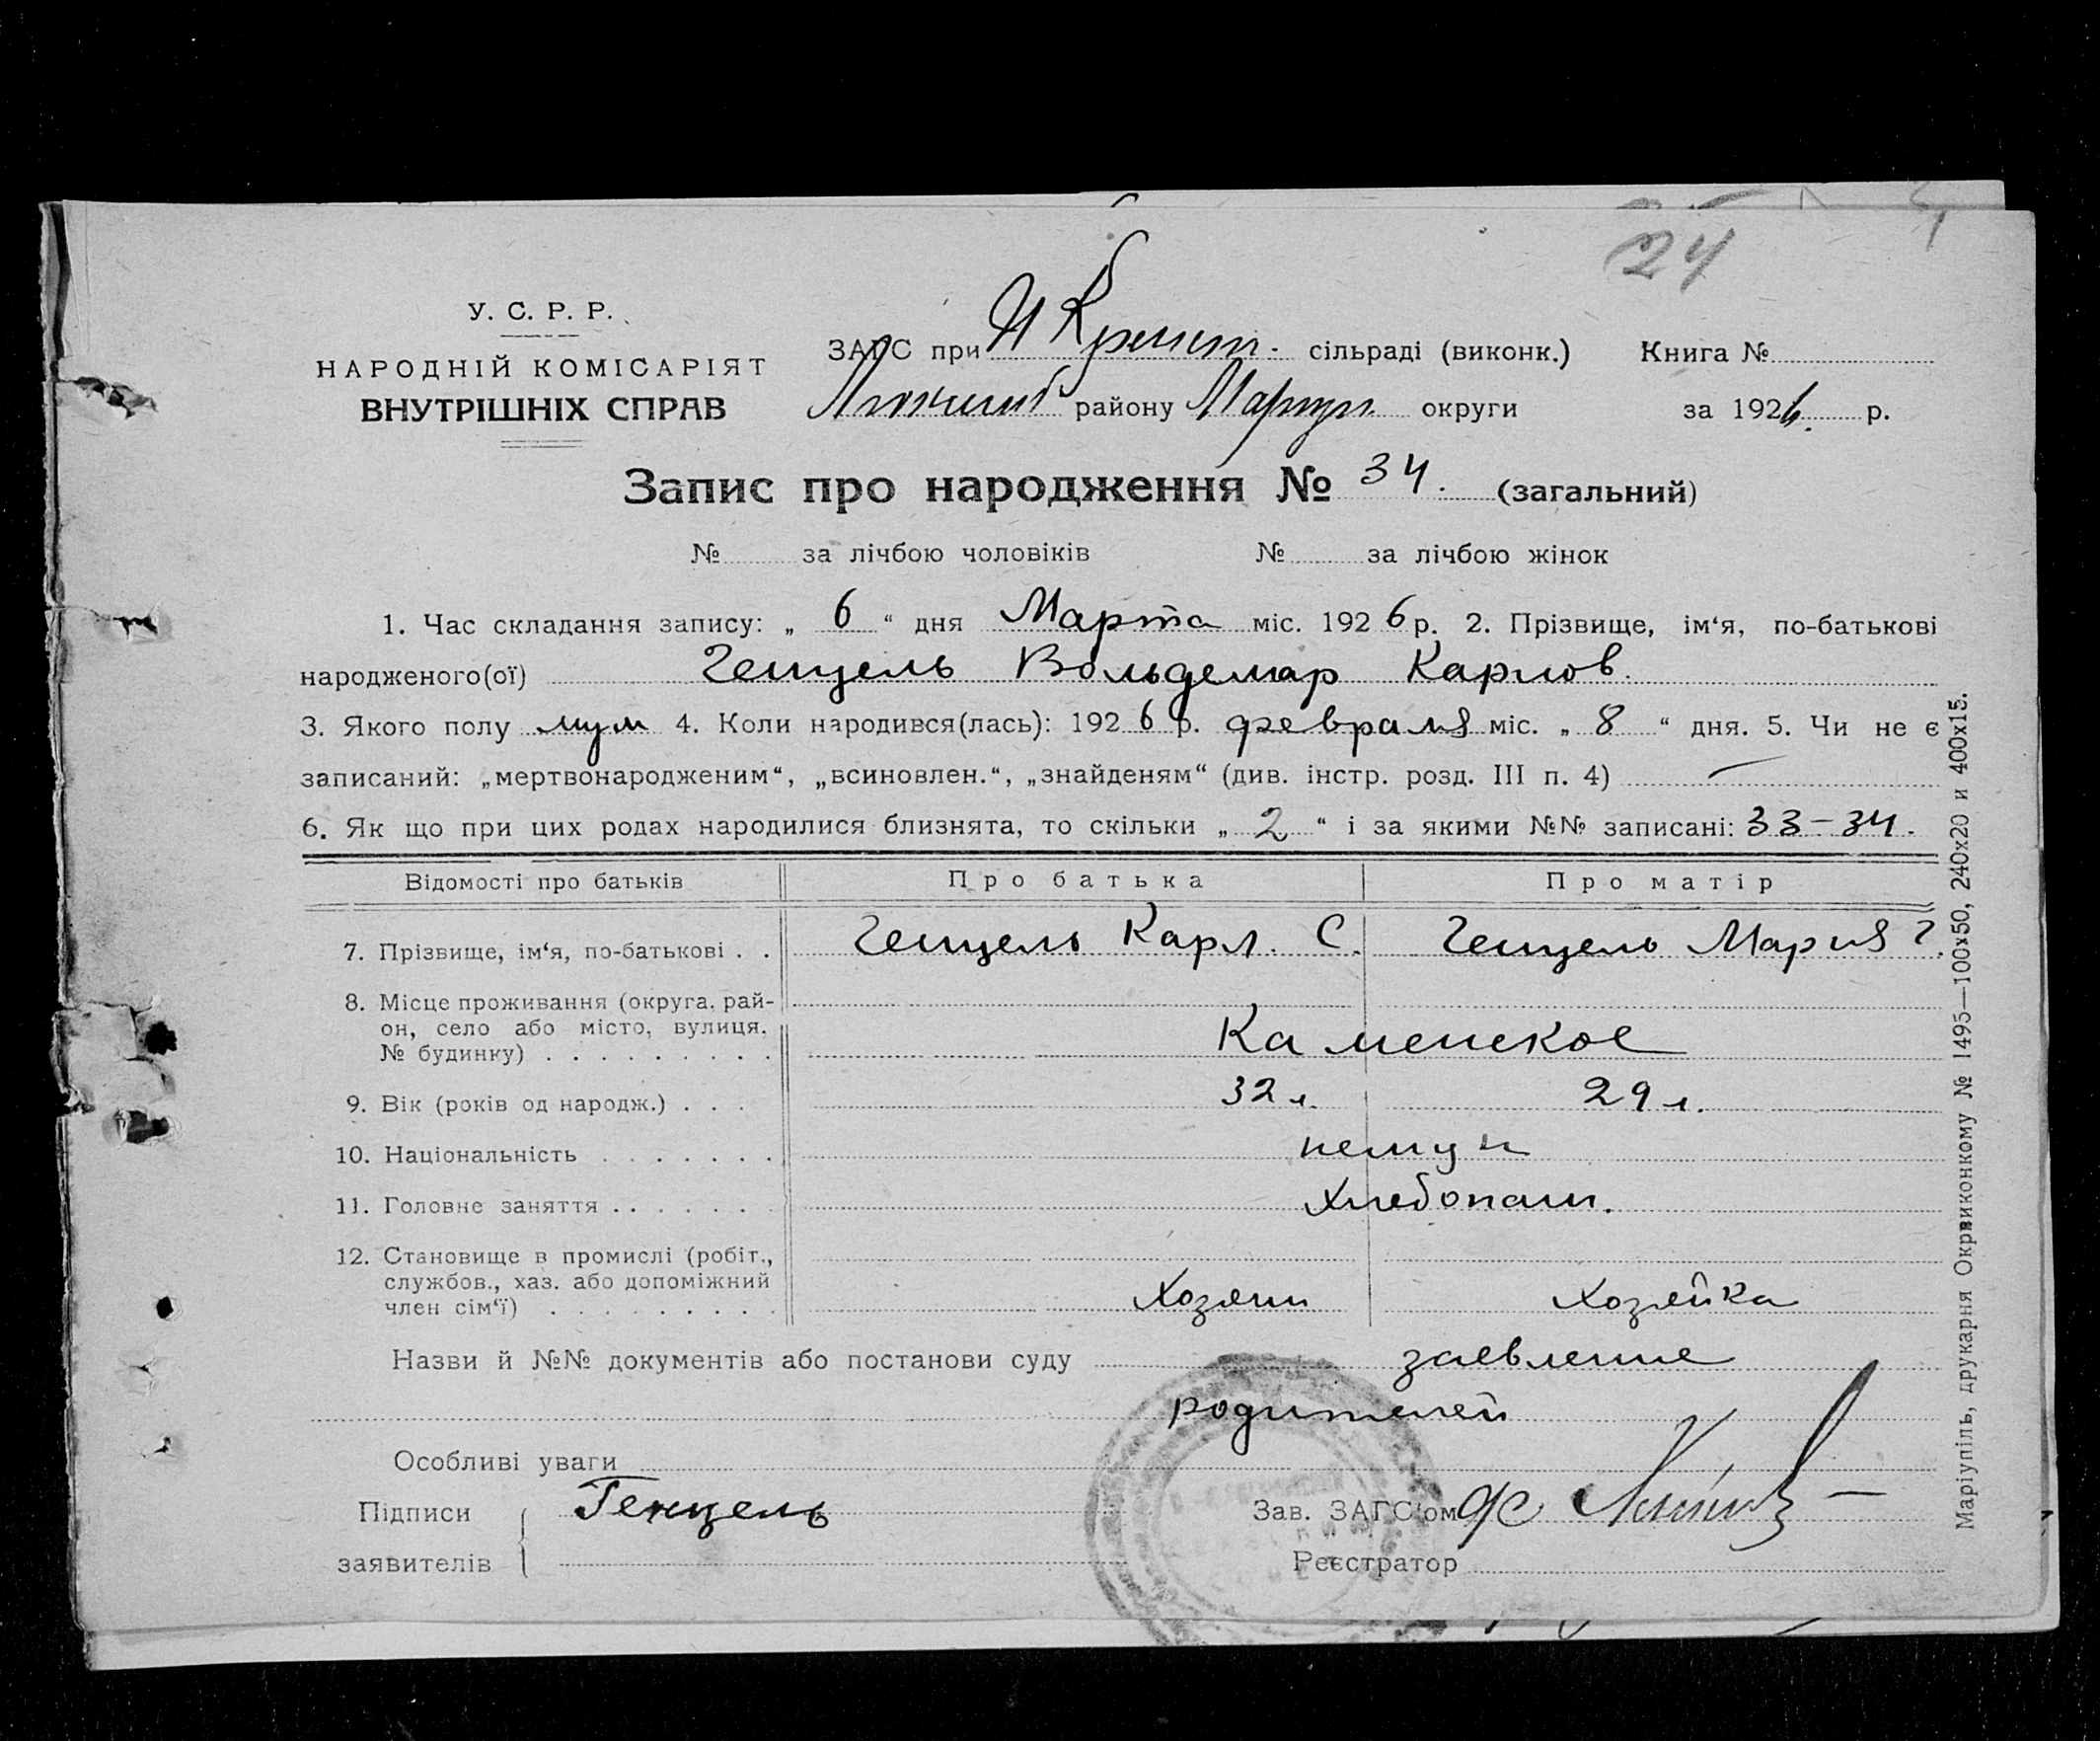 24
У. С. Р. Р.
НАРОДНІЙ КОМІСАРІЯТ
ВНУТРІШНІХ СПРАВ
ЗАГС при сільраді (виконк.) Книга №
району Мариуп. округи за 1926. р.
Запис про народження № 34. (загальний)
№ за лічбою чоловіків № за лічбою жінок
1. Час складання запису: „ 6 “ дня Марта міс. 1926 р. 2. Прізвище, ім‘я, по-батькові
народженого(ої) Генцель Вольдемар Карлов.
3. Якого полу муж 4. Коли народився(лась): 1926 р. февраля міс. „ 8 “ дня. 5. Чи не є
записаний: „мертвонародженим“, „всиновлен.“, „знайденям“ (див. інстр. розд. III п. 4) —
6. Як що при цих родах народилися близнята, то скільки „ 2 “ і за якими №№ записані: 33-34.
Відомості про батьків Про батька Про матір
7. Прізвище, ім‘я, по-батькові . . Генцель Карл. С. Генцель Мария Г.
8. Місце проживання (округа, рай-
он, село або місто, вулиця,
№ будинку) . . . . . . . . . Каменское
9. Вік (років од народж.) . . . 32 л. 29 л.
10. Національність . . . . . . . немцы
11. Головне заняття . . . . . . . Хлебопаш.
12. Становище в промислі (робіт.,
службов., хаз. або допоміжний
член сім‘ї) . . . . . . . . . Хозяин Хозяйка
Назви й №№ документів або постанови суду заевление
родителей
Особливі уваги
Підписи Генцель Зав. ЗАГС‘ом
заявителів Реєстратор
Маріупіль, друкарня Окрвиконкому № 1495—100х50, 240х20 и 400х15.